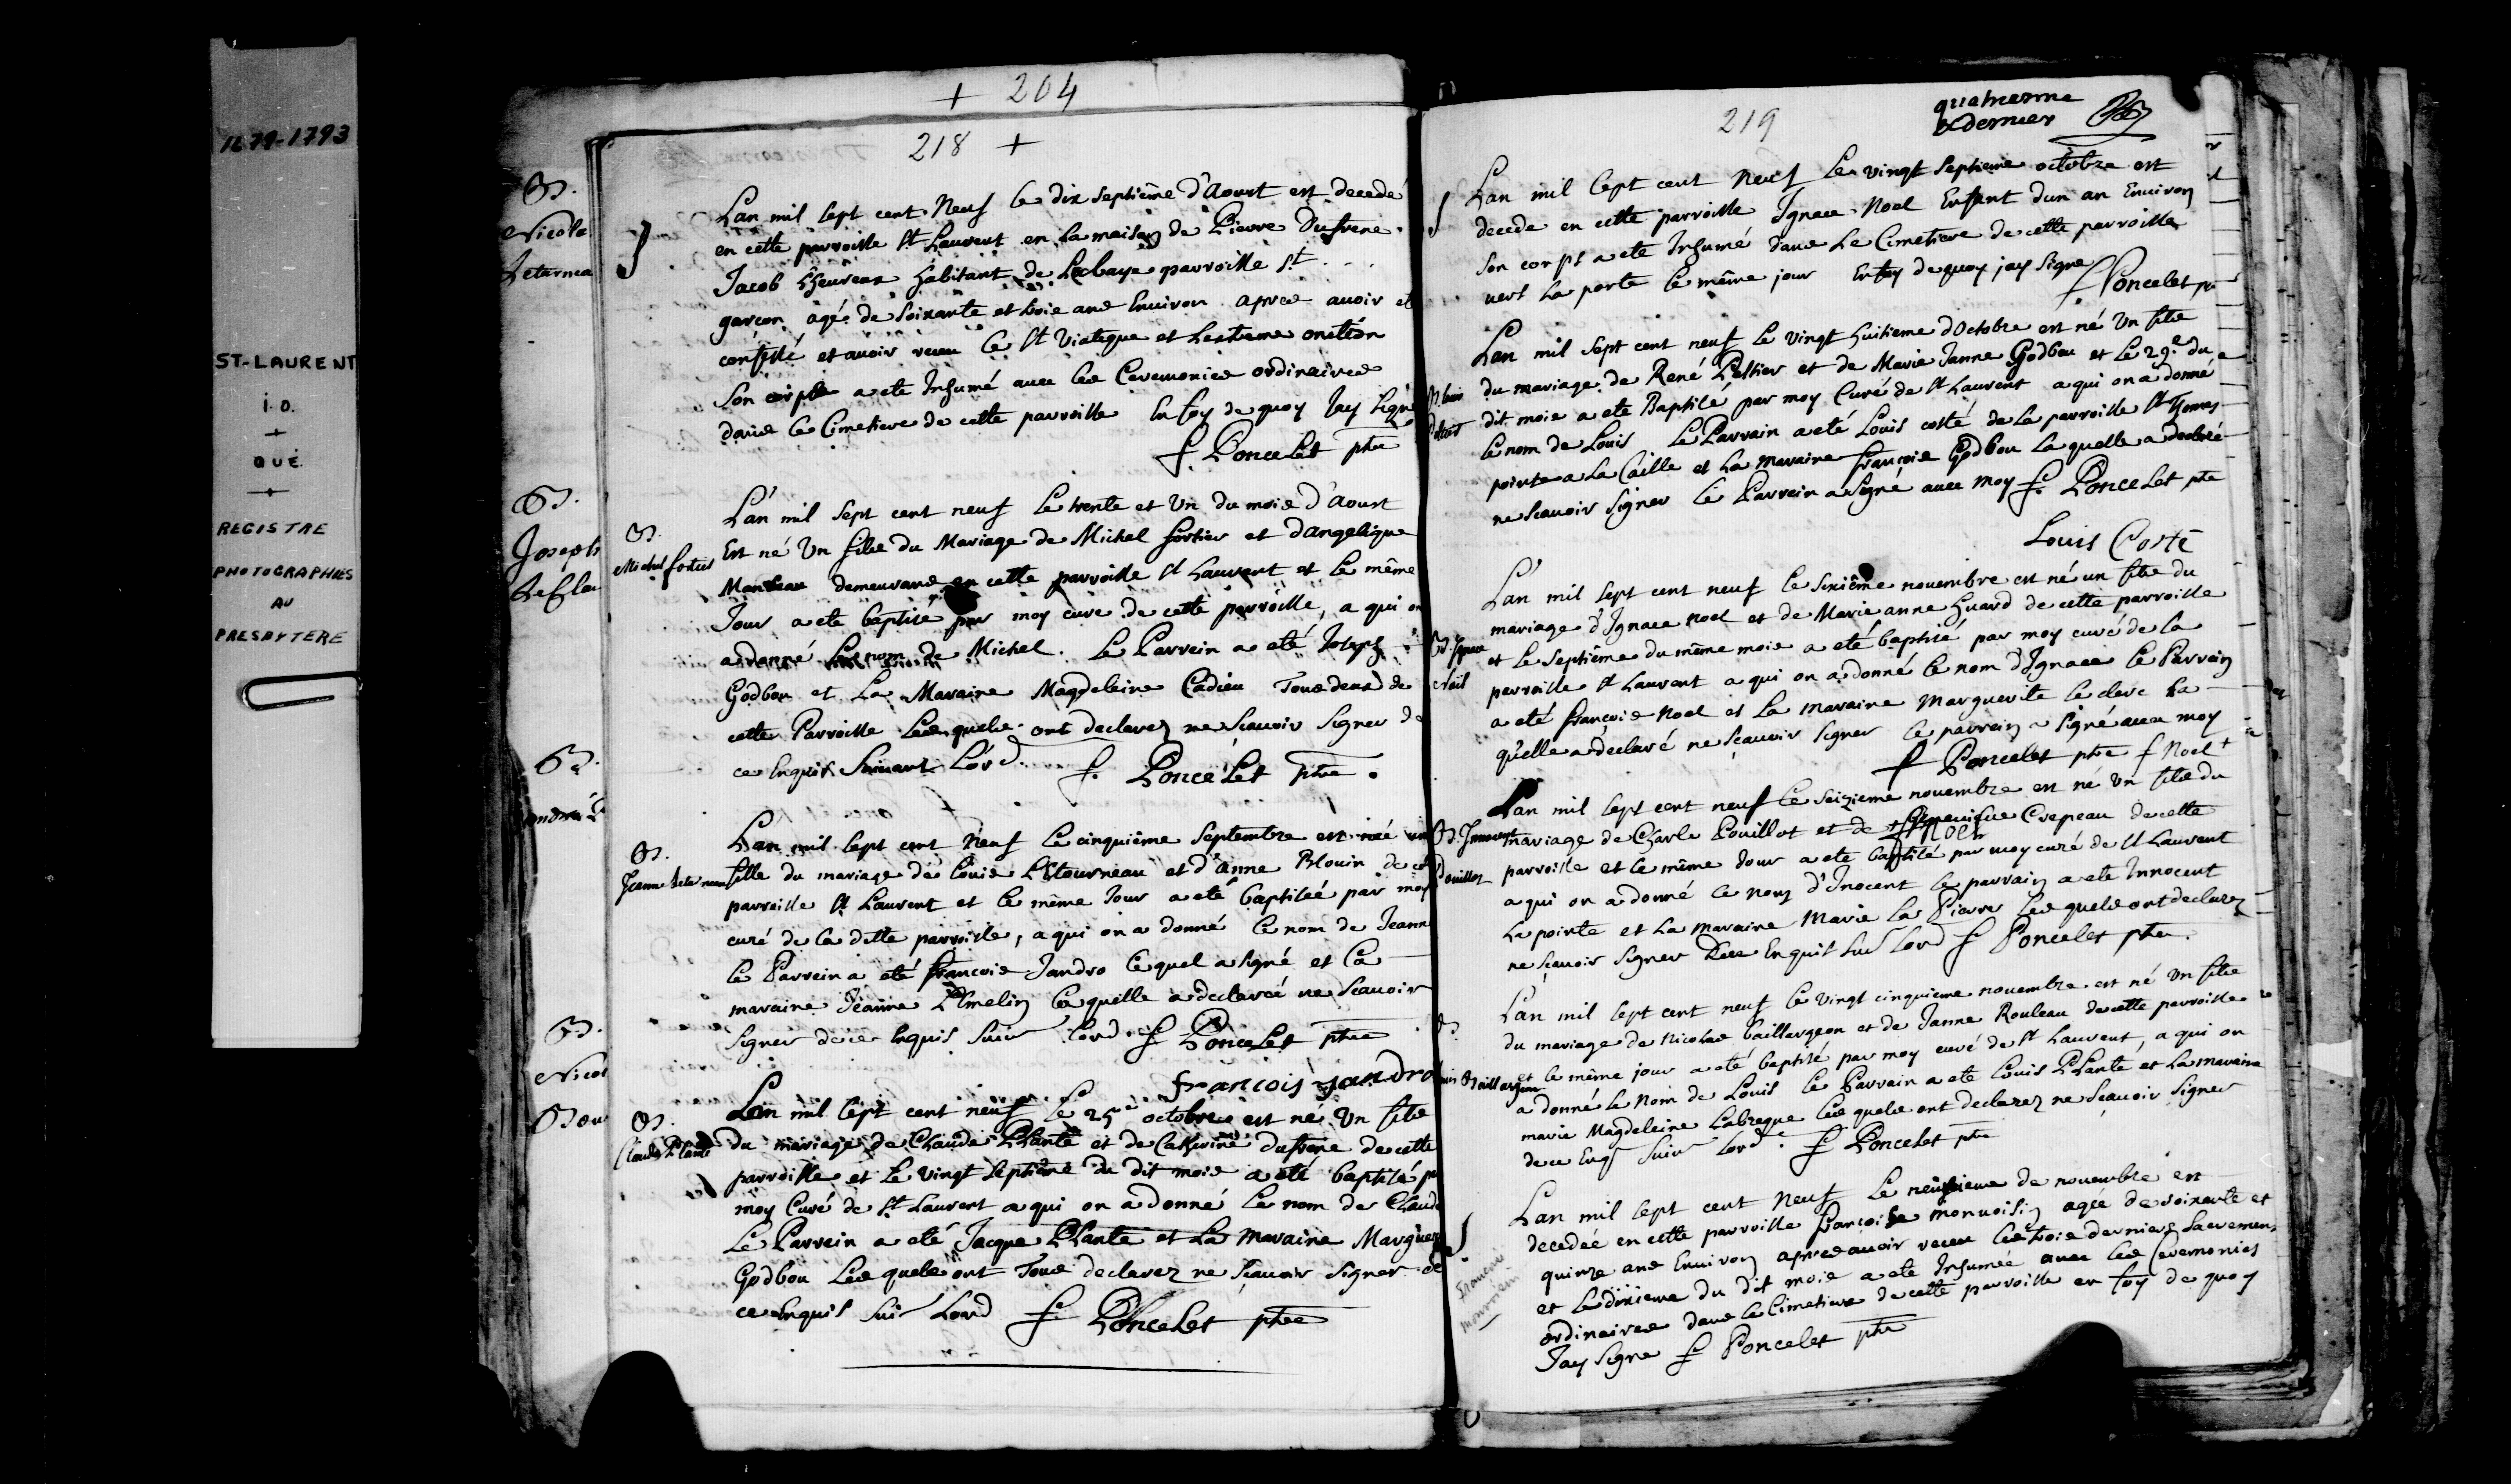 1679-1793
ST-LAURENT
I.O.
QUÉ.
REGISTRE
PHOTOGRAPHIÉS
AU
PRESBYTERE
+ 204
218 +
B.
Nicola
Joseph
B.
Nicol
L'an mil sept cent Neuf le dix septiême d'Aoust est decedé
en cette parroisse St Laurent en la maison de Pierre Dufrene
Jacob Lheureux habitant de Labaye parroisse St
garcon agé de soixante et trois ans Environ apres avoir eté
confessé et avoir receu le St Viatique et Lextreme onction
Son corps a ete Inhumé avec les Ceremonies ordinaires
dans le Cimetiere de cette parroisse En foy de quoy Jay signé
f. Poncelet ptre
B.
Michel fortier
L'an mil sept cent neuf Le trente et Un du mois d'Aoust
Est né Un fils du Mariage de Michel fortier et dangelique
Manseau demeurans en cette parroisse St Laurent et le même
Jour a ete baptisé par moy curé de cette parroisse, a qui on
a donné Le nom de Michel. Le Parrein a eté Joseph
Godbou et La Maraine Magdeleine Cadieu Tous deux de
cette Parroisse Les quels ont declarez ne scauoir Signer de
ce Enquis Suivant L'ord. f. Poncelet ptre.
B.
Jeanne Leternau
L'an mil sept cent Neuf le cinquième Septembre est née une
fille du mariage de Louis Létourneau et d'Anne Blouin de cette
parroisse St Laurent et le même Jour a eté baptiseé par moy
curé de la ditte parroisse, a qui on a donné le nom de Jeanne
le Parrein a eté francois Jandro lequel a signé et La
maraine Jeanne L'Emelin laquelle a declareé ne Scauoir
Signer de ce enquis Suiv Lord. f. Poncelet ptre
francois jandro
B.
Claude Plante
L'an mil sept cent neuf le 25e octobre est né Un fils
du mariage de Claude Plante et de Catherine dufrene de cette
parroisse et Le Vingt septiême du dit mois a eté baptisé par
moy Curé de St Laurent a qui on a donné Le nom de Claude
Le Parrein a eté Jacque Plante et La Maraine Marguer
Godbou Les quels ont Tous declarez ne Scauoir Signer de
ce enquis Sui Lord f. Poncelet ptre
219
quatriesme
& dernier
L'an mil sept cent Neuf Le vingt Septieme octobre est
decede en cette parroisse Ignace Noel Enfant d'un an Environ
Son corps a ete Inhumé dans Le Cimetiere de cette parroisse
vers La porte le même jour En foy de quoy jay Signé
f Poncelet ptre
L'an mil sept cent neuf Le Vingt huitieme d'Octobre est né Un fils
du mariage de René Peltier et de Marie Janne Godbou et Le 29e du
dit mois a ete Baptisé par moy Curé de St Laurent a qui on a donné
le nom de Louis Le Parrain a eté Louis costé de la parroisse St Thomas
pointe a La Caille et La maraine francoise Godbou La quelle a declaré
ne Scauoir Signer Le Parrein a Signé avec moy f. Poncelet ptre
Louis Costé
L'an mil sept cent neuf le Sixiême novembre est né un fils du
mariage d'Ignace Noel et de Marie anne Huard de cette parroisse
et Le Septiême du même mois a eté baptisé par moy curé de La
parroisse St Laurent a qui on a donné le nom d'Ignace Le Parrein
a eté francois Noel et La maraine Marguerite le clerc La
quelle a declaré ne Scauoir Signer le parrein a signé avec moy
f Poncelet ptre f Noel +
L'an mil sept cent neuf le Seizieme novembre est né Un fils du
mariage de Charle Pouillot et de Genevieve Crepeau de cette
parroisse et le même Jour a ete baptisé par moy curé de St Laurent
a qui on a donné le nom d'Inocent le parrain a ete Innocent
La pointe et La maraine Marie La Pierre Les quels ont declarez
ne scauoir Signer De ce Enquis Sui Lord f Poncelet ptre.
L'an mil sept cent neuf le Vingt cinquieme novembre est né Un fils
du mariage de Nicolas baillargeon et de Janne Rouleau de cette parroisse
et le même jour a eté baptisé par moy curé de St Laurent, a qui on
a donné le Nom de Louis le Parrain a ete Louis Plante et La maraine
marie Magdeleine Labreque Les quels ont declarez ne Scauoir Signer
de ce Enq Suiv Lord. f Poncelet ptre
Francoise
L'an mil sept cent Neuf Le neufvieme de novembre est
decedeé en cette parroisse francoise monvoisin agée de soixante et
quinze ans Environ apres avoir receu les trois derniers Sacremens
et Le dixieme du dit mois a ete Inhumée avec les Ceremonies
ordinaires dans le Cimetiere de cette parroisse en foy de quoy
Jay Signe f Poncelet ptre